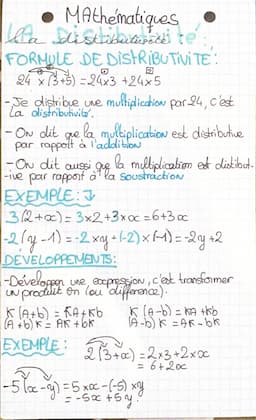 MAthématiques
La distributivité:
FORMULE DE DISTRIBUTIVITE:
24 x (3+5) = 24x3 + 24x5
-Je distribue une multiplication par 24, c'est
la distributivité.
- On dit que la multiplication est distributive
par rapport à l'addition
- On dit aussi que la multiplication est distibut-
-ive par rapport à la soustraction
EXEMPLE:
3(2+x) = 3x2+3xx = 6+3x
-2(y-1) = -2xy+(-2)x(-1) = -2y+2
DEVELOPPEMENTS:
-Développer une expression, c'est transformer
un produit en (ou différence).
K(A+b) = KA+Kb K(A-b) = KA+Kb
(A+b)K = AK+bK (A-b)K = AK-bK
EXEMPLE: 2(3+x) = 2x3+2xx
= 6+2x
-5(x-y) = 5xx-(-5)xy
= -5x+5y